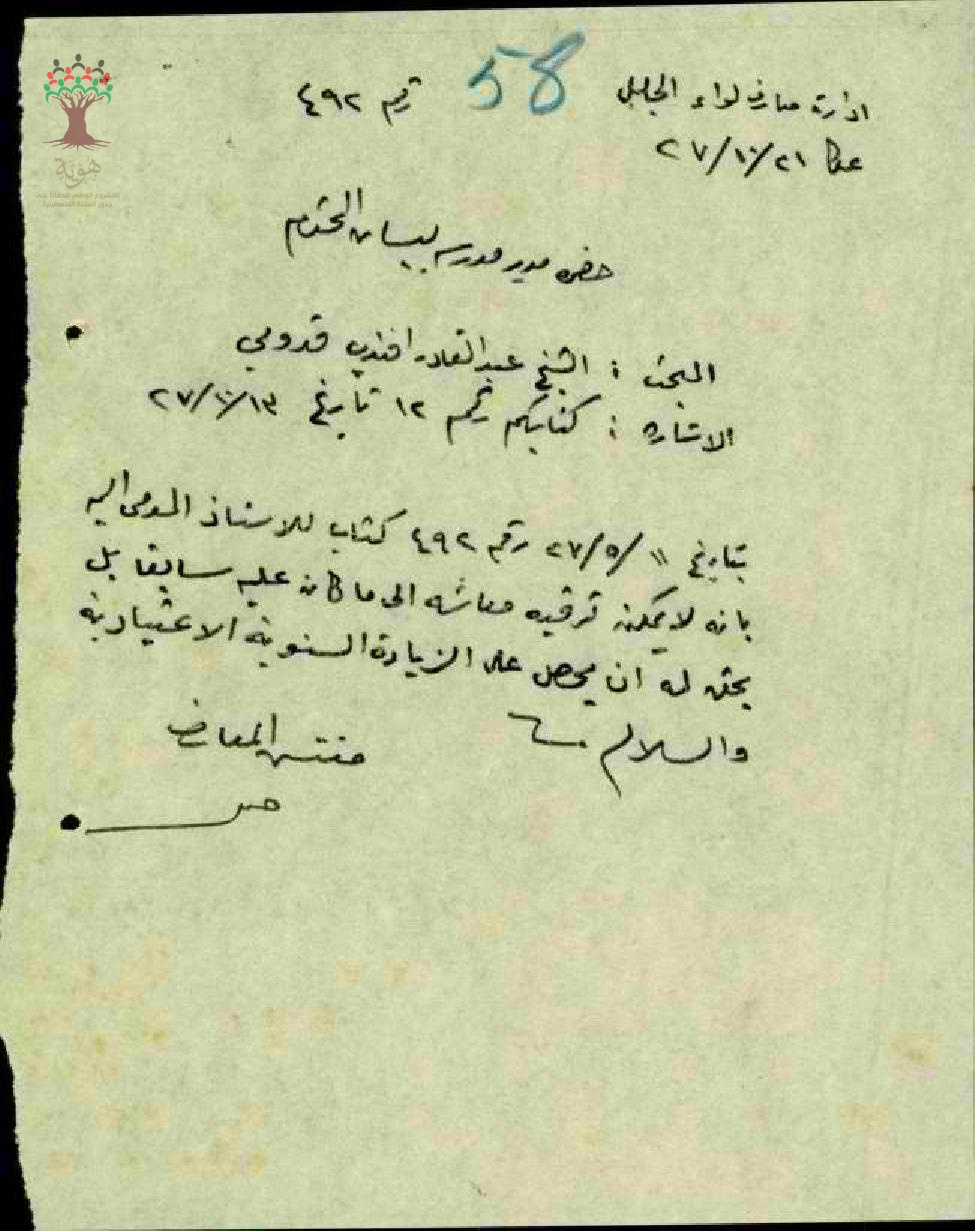 ادارة معارف لواء الجليل 58 رقم ٤٩٢
عكا ٢١/١٠/٢٧
هوية
حضرة مدير مدرسة بيسان المحترم
المبحث : الشيخ عبد القادر افندي قدومي
الاشارة : كتابكم رقم ١٢ تاريخ ١٣/١٠/٢٧
بتاريخ ١١/٥/٢٧ رقم ٤٩٢ كتاب للاستاذ المومى اليه
بانه لا يمكن ترقيه معاشه الى ما كان عليه سابقا بل
يحق له ان يحصل على الزيادة السنوية الاعتيادية
والسلام
مفتش المعارف